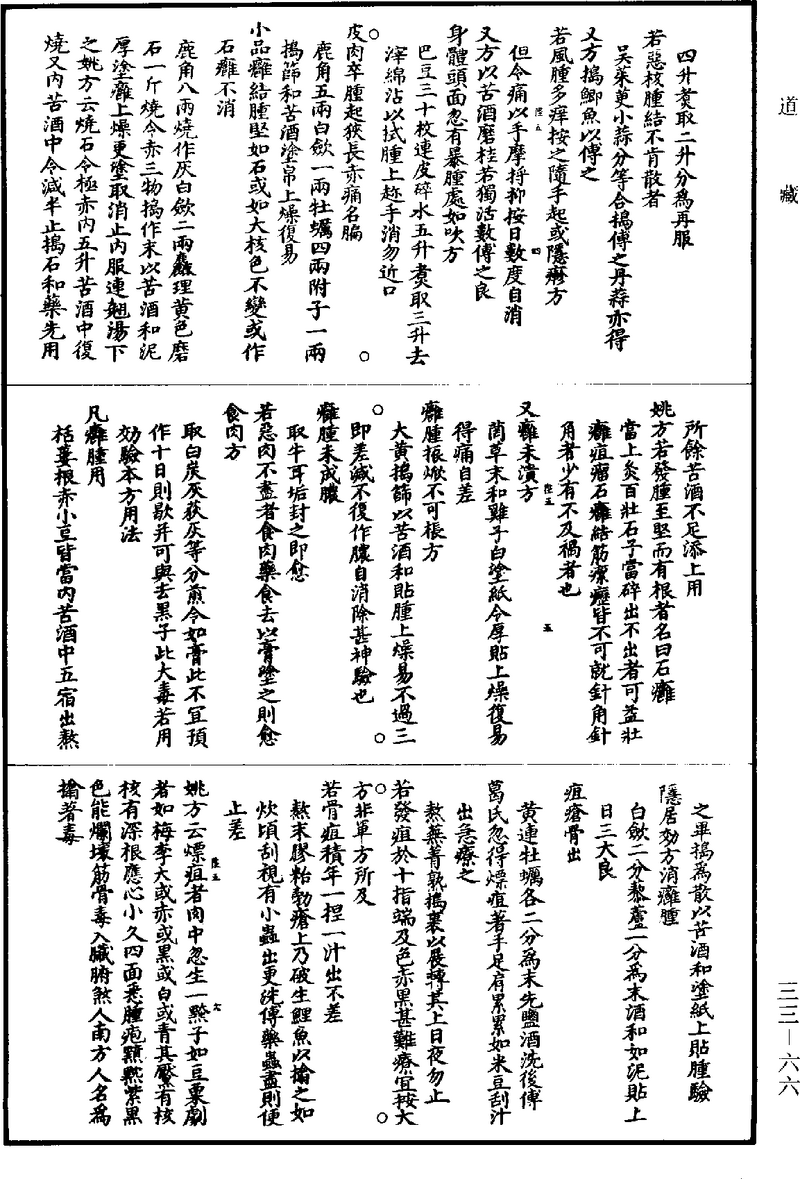 道藏
四升煑取二升分爲再服
若惡核腫結不肯散者
吴茱萸小蒜分等合搗傅之丹蒜亦得
又方搗鯽魚以傅之
若風腫多痒按之隨手起或隱㾦方
但令痛以手摩捋抑按日數度自消
又方以苦酒磨桂若獨活數傅之良
身體頭面忽有暴腫處如吹方
巴豆三十枚連皮碎水五升煑取三升去
滓綿沾以拭腫上趂手消勿近口
皮肉卒腫起狹長赤痛名膈
鹿角五兩白歛一兩牡蠣四兩附子一兩
搗篩和苦酒塗帛上燥復易
小品癰結腫堅如石或如大核色不變或作
石癰不消
鹿角八兩燒作灰白歛二兩麤理黄色磨
石一斤燒令赤三物搗作末以苦酒和泥
厚塗癰上燥更塗取消止内服連翹湯下
之姚方云燒石令極赤内五升苦酒中復
燒又内苦酒中令減半止搗石和藥先用
所餘苦酒不足添上用
姚方若發腫至堅而有根者名曰石癰
當上灸百壯石子當碎出不出者可益壯
癰疽瘤石癰結筋瘰癧皆不可就針角針
角者少有不及禍者也
又癰未潰方
䓪草末和雞子白塗紙令厚貼上燥復易
得痛自差
癰腫振焮不可棖方
大黄搗篩以苦酒和貼腫上燥易不過三
即差減不復作膿自消除甚神驗也
癰腫未成膿
取牛耳垢封之即愈
若惡肉不盡者食肉藥食去以膏塗之則愈
食肉方
取白炭灰荻灰等分煎令如膏此不宜預
作十日則歇并可與去黑子此大毒若用
効驗本方用法
凡癰腫用
栝蔞根赤小豆皆當内苦酒中五宿出熬
之畢搗爲散以苦酒和塗紙上貼腫驗
隱居効方消癰腫
白歛二分藜蘆一分爲末酒和如泥貼上
日三大良
疽瘡骨出
黄連牡蠣各二分爲末先鹽酒洗後傅
葛氏忽得熛疽著手足肩累累如米豆刮汁
出急療之
熬蕪菁熟搗裹以展轉其上日夜勿止
若發疽於十指端及色赤黒甚難療宜按大
方非單方所及
若骨疽積年一捏一汁出不差
熬末膠粘勃瘡上乃破生鯉魚以搶之如
炊頃刮視有小蟲出更洗傅藥蟲盡則便
止差
姚方云熛疽者肉中忽生一䵟子如豆粟劇
者如梅李大或赤或黒或白或青其黶有核
核有深根應心小久四面悉腫疱黯黕紫黒
色能爛壊筋骨毒入臟腑煞人南方人名爲
搶著毒
陸五 四
陸五 五
陸五 六
三三—六六